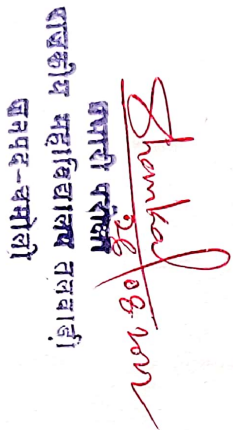 Shankar
26/08/2022
प्रभारी परीक्षा
राजकीय महाविद्यालय तलवाड़ी
जनपद-चमोली